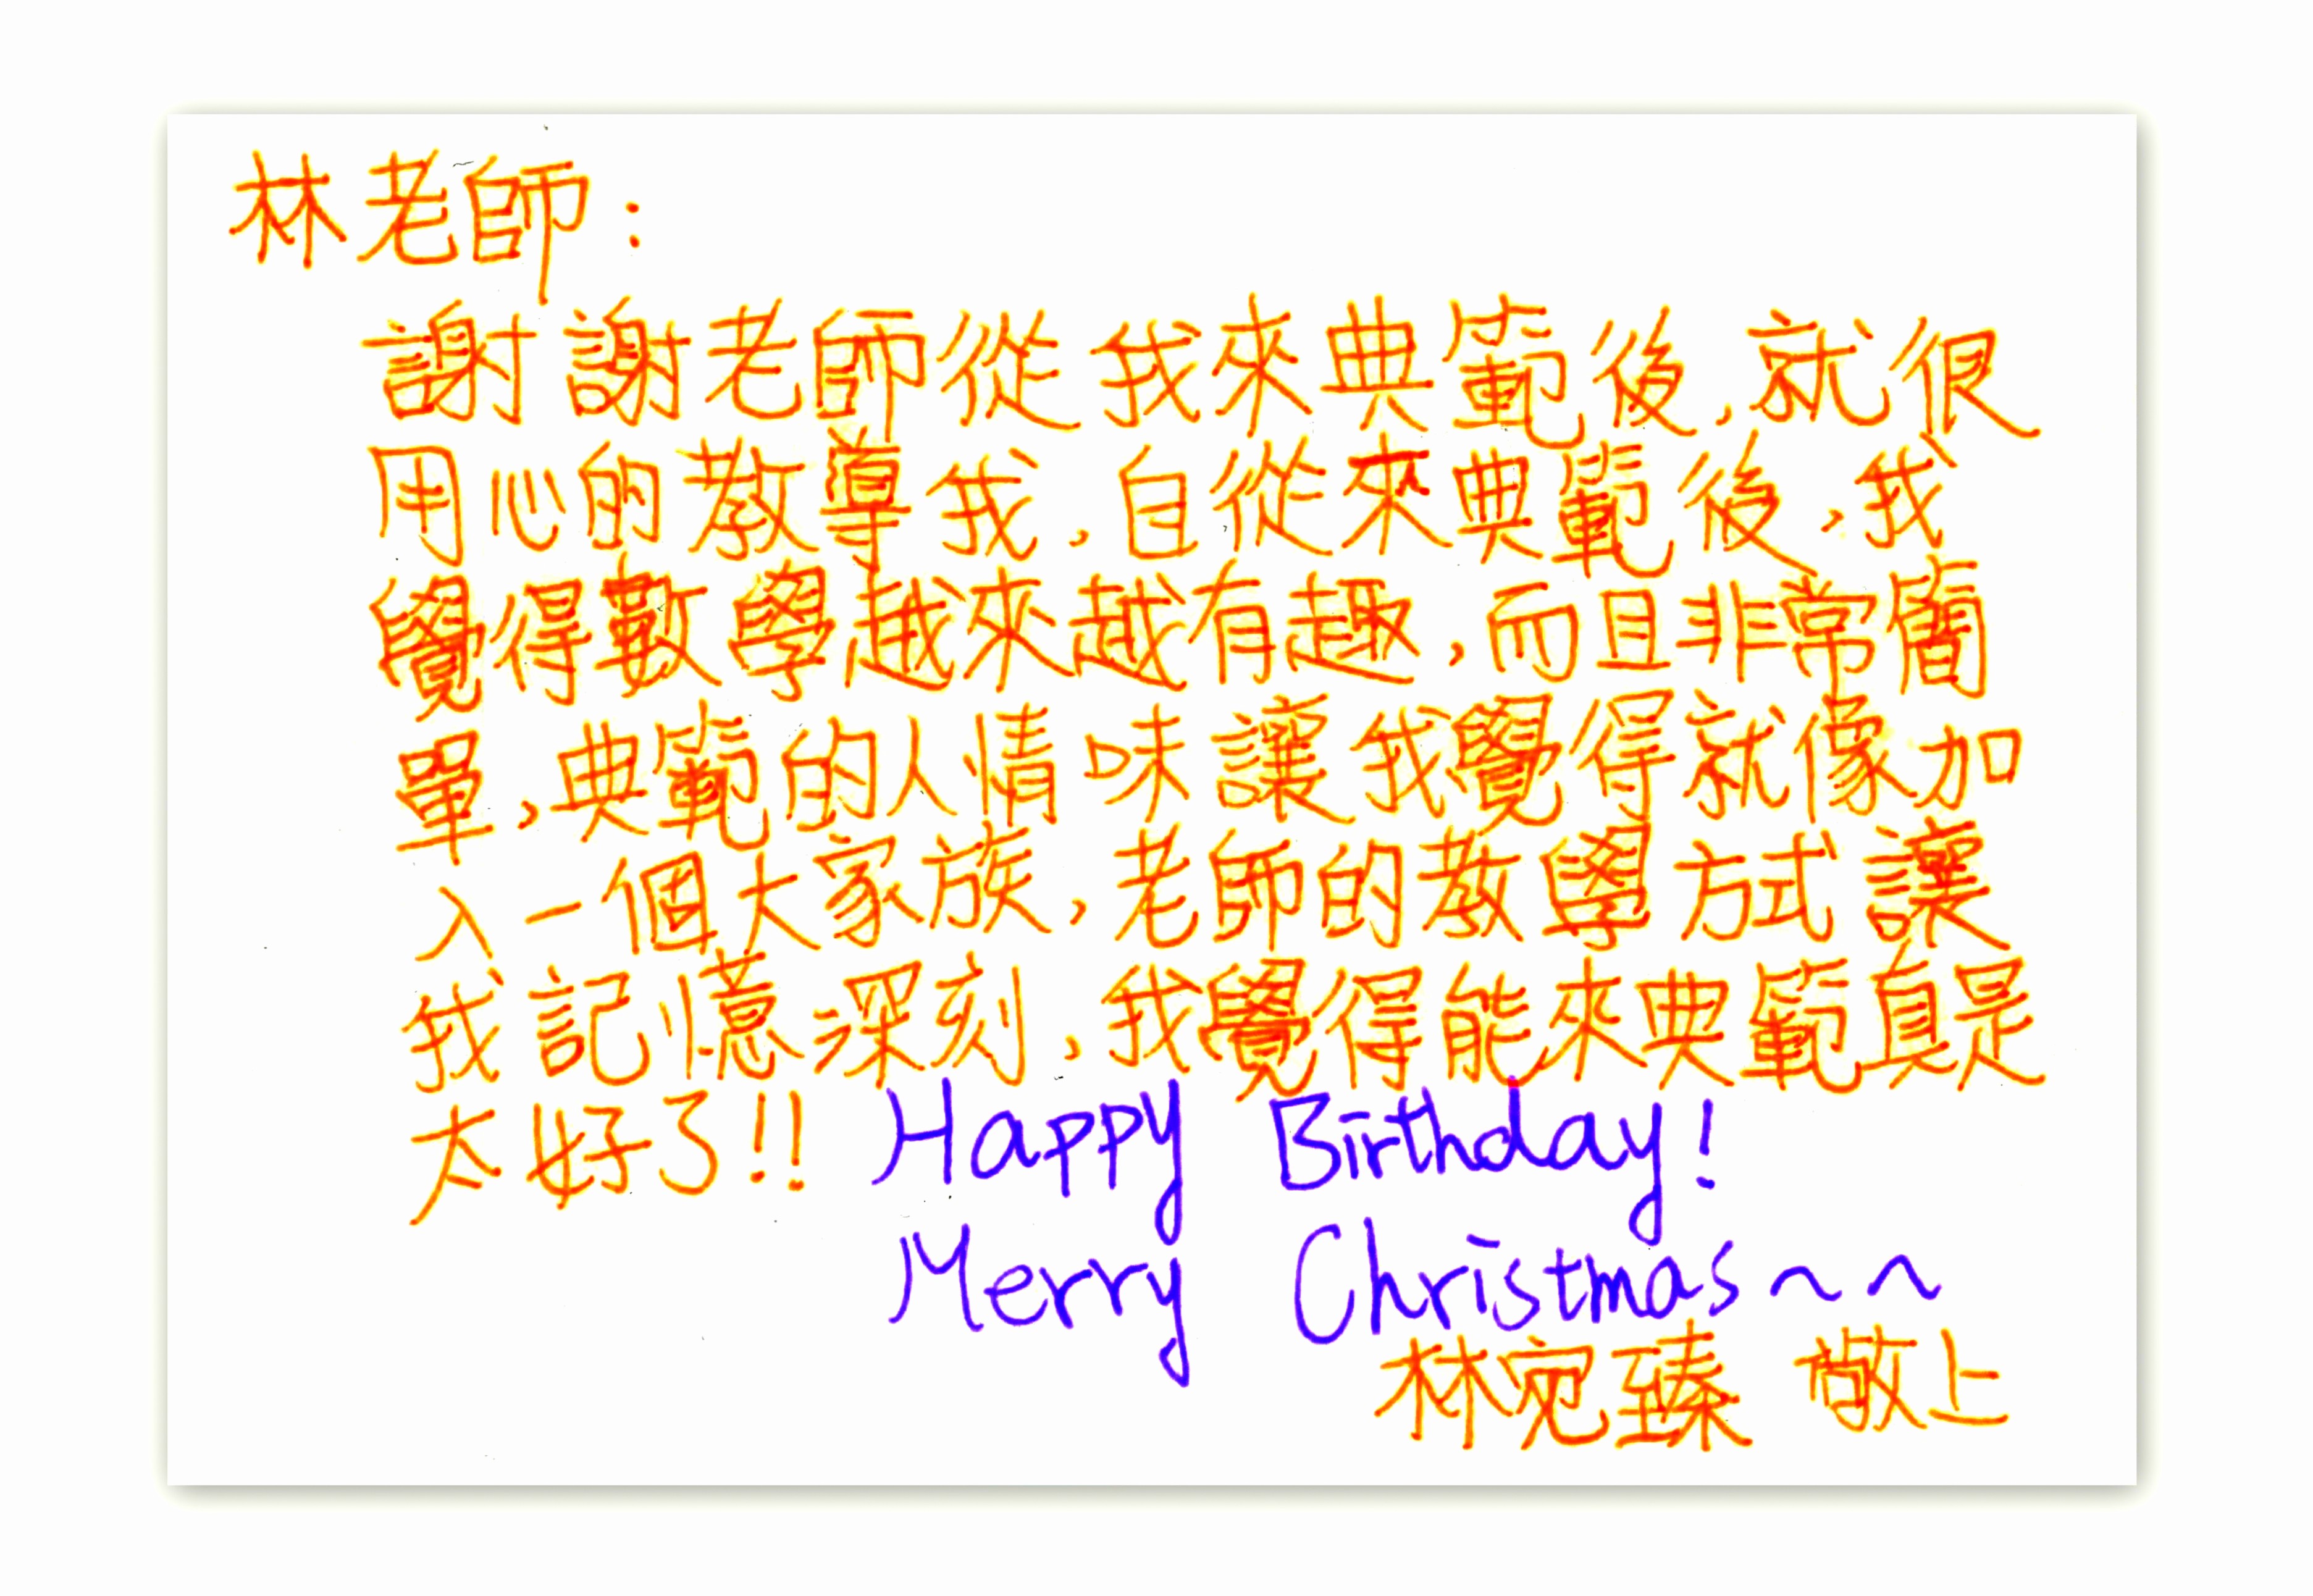 林老師：
謝謝老師從我來典範後，就很
用心的教導我，自從來典範後，我
覺得數學越來越有趣，而且非常簡
單，典範的人情味讓我覺得就像加
入一個大家族，老師的教學方式讓
我記憶深刻，我覺得能來典範真是
太好了!! Happy Birthday!
Merry Christmas~~
林宛臻 敬上